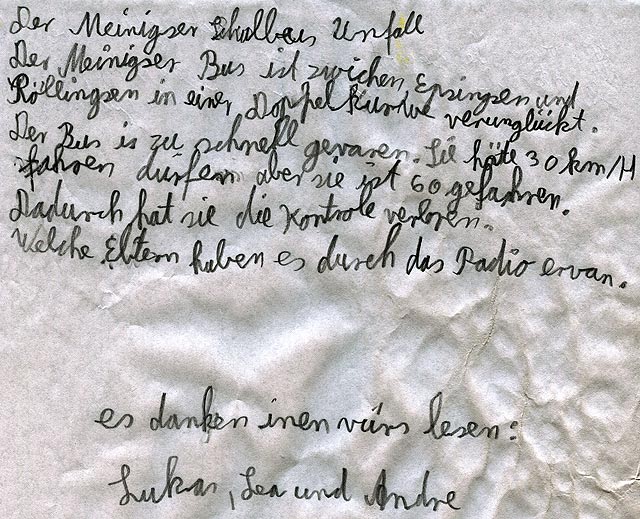 Der Meinigser Schulbus Unfall
Der Meinigser Bus ist zwichen Epsingsen und
Röllingsen in einer Doppelkurwe verunglückt.
Der Bus is zu schnell gevaren. Sie hätte 30 km/H
fahren dürfen aber sie ist 60 gefahren.
Dadurch hat sie die Kontrole verloren.
Welche Eltern haben es durch das Radio ervan.
es danken inen vürs lesen:
Lukas, Lea und Andre